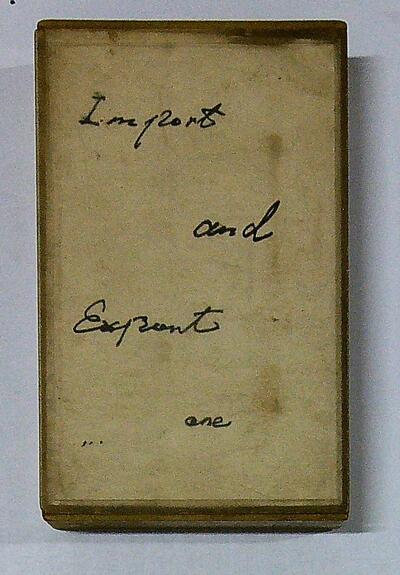 Import
and
Export
one
...